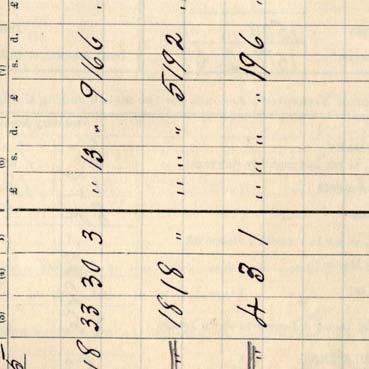 (6) (7)
£ s. d. £ s. d. £
18 33 30 3 " 13 " 9 16 6
" 18 18 " " " " 5 19 2
" 4 3 1 " " " " 19 6